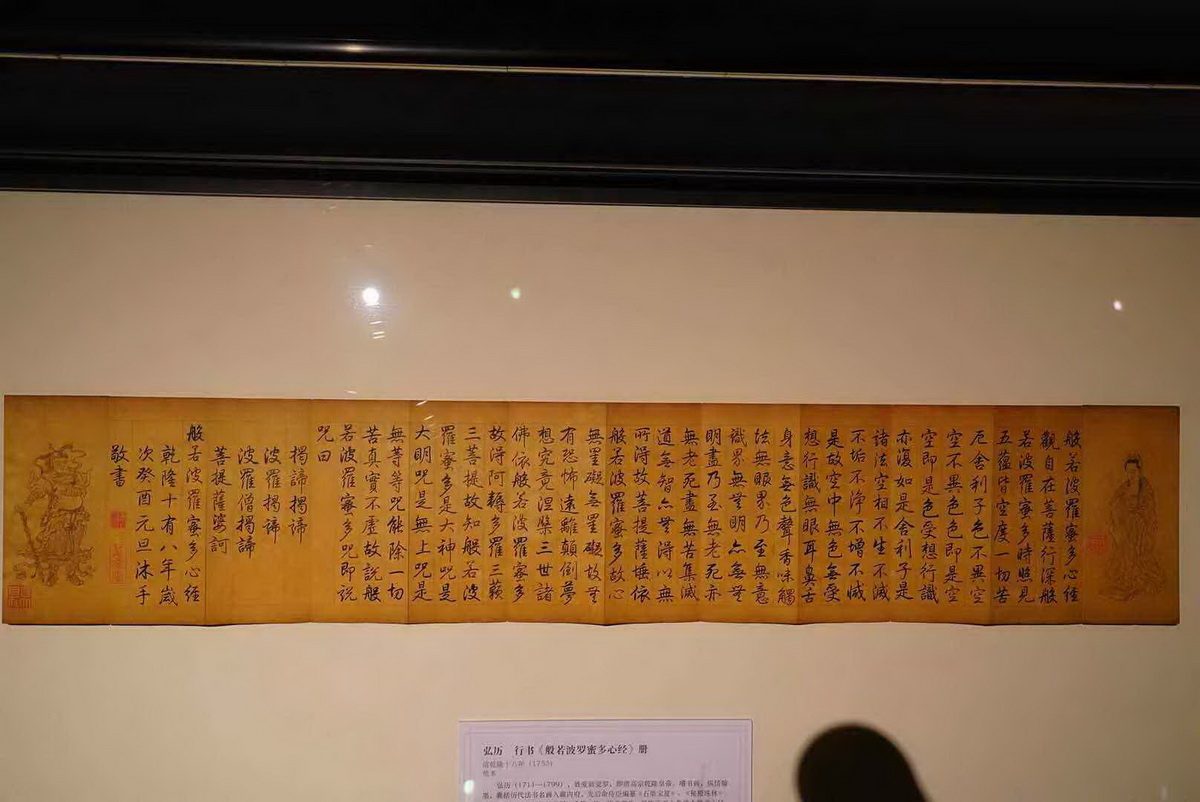 般若波羅蜜多心經
觀自在菩薩行深般
若波羅蜜多時照見
五蘊皆空度一切苦
厄舍利子色不異空
空不異色色即是空
空即是色受想行識
亦復如是舍利子是
諸法空相不生不滅
不垢不淨不增不減
是故空中無色無受
想行識無眼耳鼻舌
身意無色聲香味觸
法無眼界乃至無意
識界無無明亦無無
明盡乃至無老死亦
無老死盡無苦集滅
道無智亦無得以無
所得故菩提薩埵依
般若波羅蜜多故心
無罣礙無罣礙故無
有恐怖遠離顛倒夢
想究竟涅槃三世諸
佛依般若波羅蜜多
故得阿耨多羅三藐
三菩提故知般若波
羅蜜多是大神咒是
大明咒是無上咒是
無等等咒能除一切
苦真實不虛故說般
若波羅蜜多咒即說
咒曰
揭諦揭諦
波羅揭諦
波羅僧揭諦
菩提薩婆訶
般若波羅蜜多心經
乾隆十有八年歲
次癸酉元旦沐手
敬書
弘历 行书《般若波罗蜜多心经》册
清乾隆十八年（1753）
纸本
弘历（1711—1799），姓爱新觉罗，即清高宗乾隆皇帝。嗜书画，纵情翰
墨，历代法书名画入藏内府，先后命侍臣编纂《石渠宝笈》、《秘殿珠林》